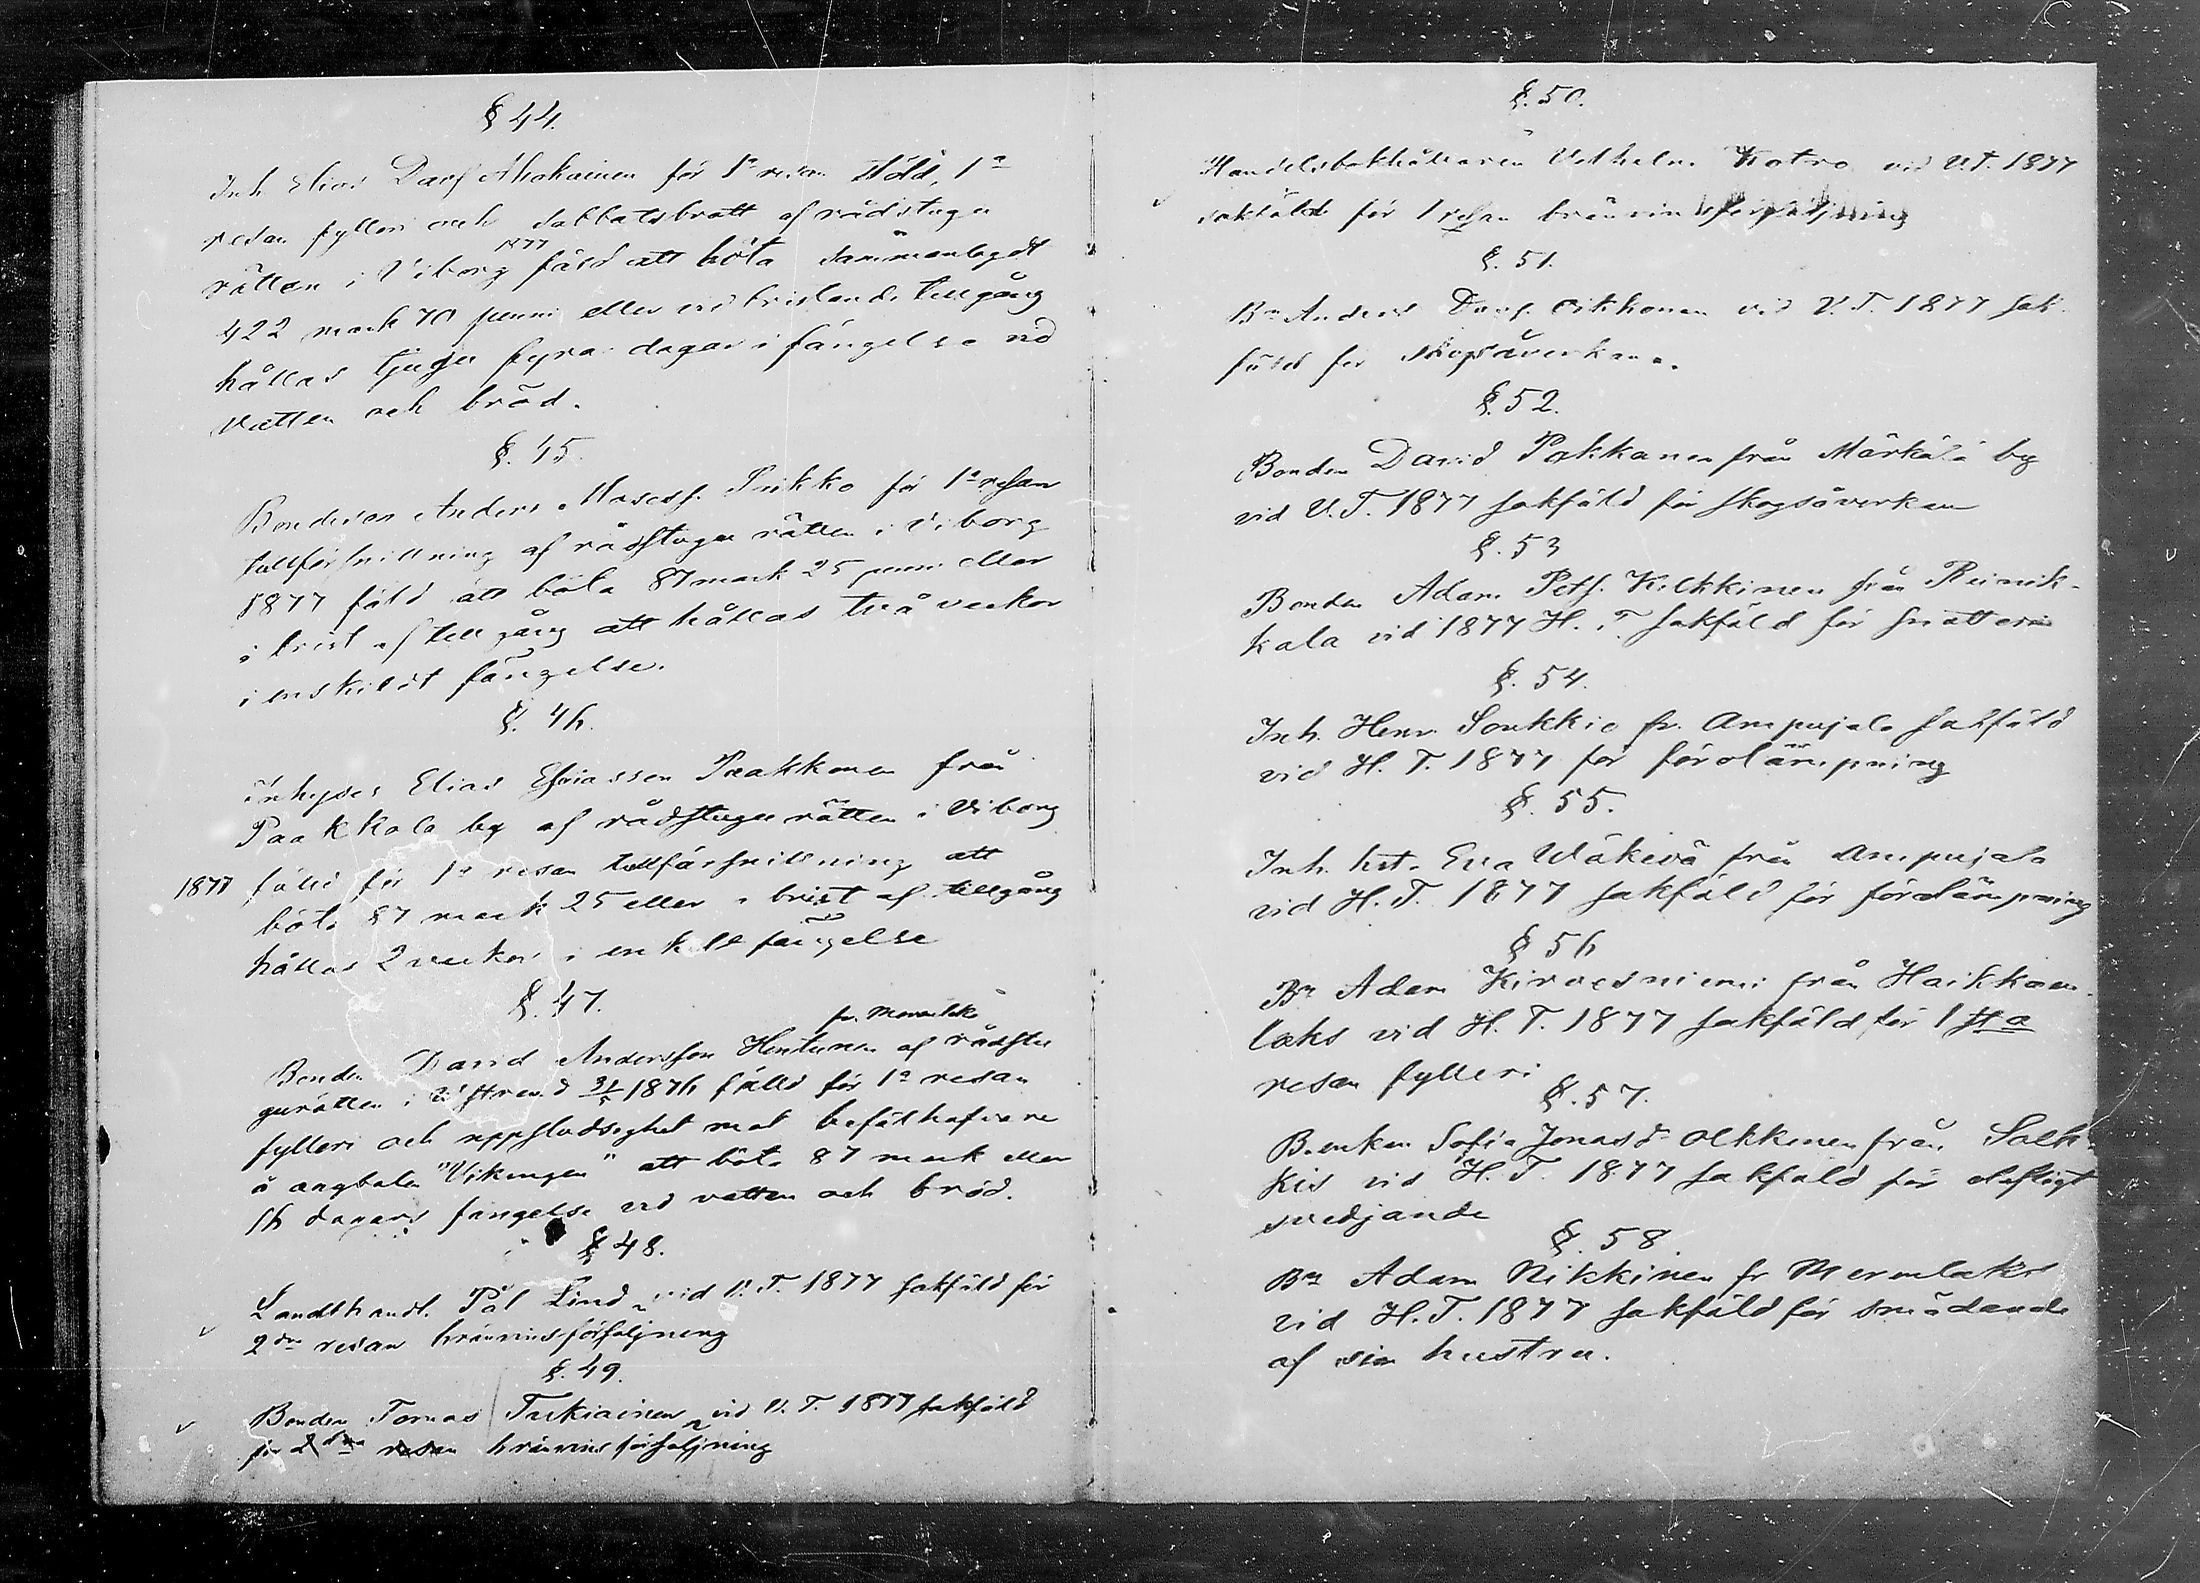 § 44.
Inh Elias Davf Ahokainen för 1a resan stöld, 1a
resan fylleri och Sabbatsbrott af rådstugu
rätten i Viborg 1877 fäld att böta sammanlagdt
422 mark 70 penni eller vid bristande tillgång
hållas tjugu fyra dagar i fängelse vid
vatten och bröd.
§. 45
Bondeson Anders Mosesf. Pukko för 1a resan
tullförsnillning af rådstugu rätten i Viborg
1877 fäld att böta 87 mark 25 penni eller
i brist af tillgång att hållas två veckor
i enskildt fängelse.
§. 46.
Inhyses Elias Esaiasson Paakkonen från
Paakkola by af rådstugu rätten i Viborg
1877 fälld för 1a resan tullförsnillning att
böta 87 mark 25 eller i brist af tillgång
hållas 2 veckor i enkelt fängelse
§. 47.
Bonden David Andersson Hentunen fr. Monrelaks af rådstu
gurätten i 31/5 1876 fälld för 1a resan
fylleri och uppstudsighet mot befälhafvare
å ångbaten "Vikingen" att böta 87 mark eller
16 dagars fängelse vid vatten och bröd.
§ 48.
Landthandl. Pål Lind vid V. T. 1877 sakfäld för
2dra resan bränvinsförsäljning
§. 49.
Bonden Tomas Tukiainen vid V. T. 1877 sakfäld
för 2dra resan bränvinsförsäljning
§. 50.
Handelsbokhållaren Vilhelm Kotro vid V.T. 1877
sakfäld för 1 resan bränvinsförsäljning
§. 51.
Bn Anders Davf. Oikkonen vid V. T. 1877 sak
fäld för skogsåverkan.
§. 52.
Bonden David Pakkanen från Märkälä by
vid V. T. 1877 sakfäld för skogsåverkan
§. 53
Bonden Adam Petf. Kilkkinen från Reinik-
kala vid 1877 H. T. sakfäld för snatteri
§. 54.
Inh. Henr. Soukkio fr. Ampujala sakfäld
vid H. T. 1877 för förolämpning
§. 55.
Inh. hst. Eva Wäkevä från Ampujala
vid H. T. 1877 sakfäld för förolämpning
§ 56
Bn Adam Kirvesniemi från Haikkaan-
laks vid H. T. 1877 sakfäld för 1 sta
resan fylleri
§. 57.
B.enkan Sofia Jonasd. Olkkonen från Salk-
kis vid H. T. 1877 sakfäld för olofligt
svedjande
§. 58
Bn Adam Nikkinen fr Mermlaks
vid H. T. 1877 sakfäld för smädande
af sin hustru.